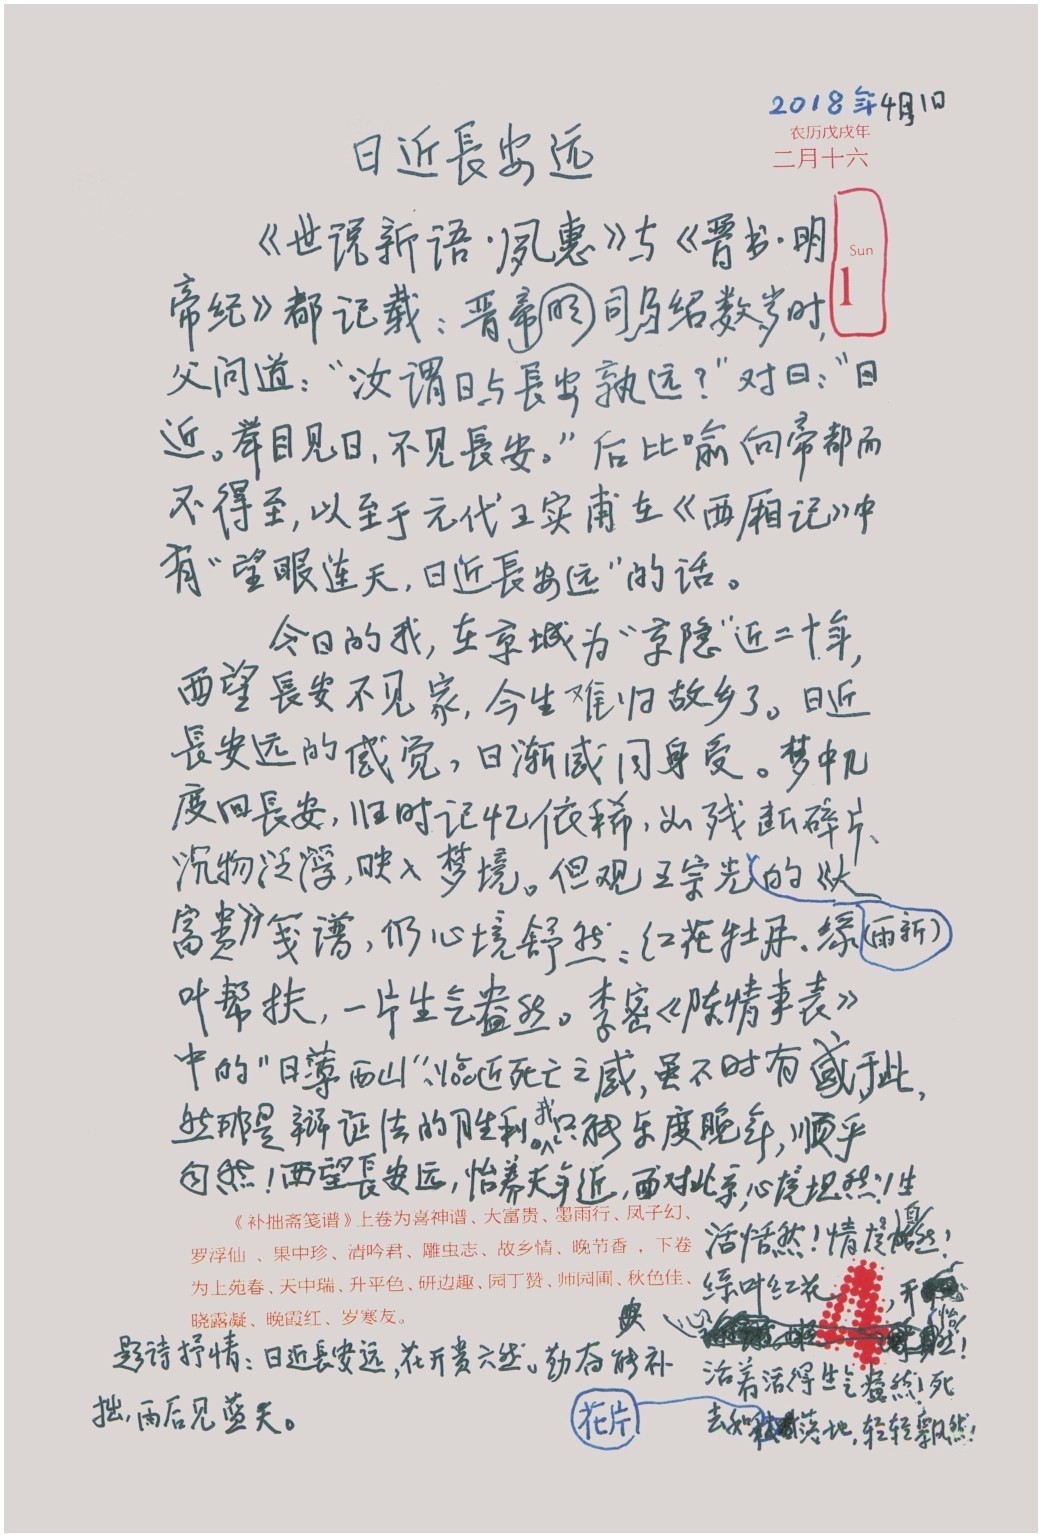 2018年4月1日
农历戊戌年
二月十六
日近長安远
《世说新语·夙惠》与《晋书·明
Sun
1
帝纪》都记载：晋帝明司马绍数岁时，
父问道：“汝谓日与長安孰远？”对曰：“日
近。举目见日，不见長安。”后比喻向帝都而
不得至，以至于元代王实甫在《西厢记》中
有“望眼连天，日近長安远”的话。
今日的我，在京城为“京隐”近二十年，
西望長安不见家，今生难归故乡了。日近
長安远的感觉，日渐感同身受。梦中几
度回長安，旧时记忆依稀，如残垣碎片、
沉物泛浮，映入梦境。但观王宗光的《大
富贵》笺谱，仍心境舒然：红花牡丹、绿
（雨新）
叶帮扶，一片生气盎然。李密《陈情事表》
中的“日薄西山”、临近死亡之感，虽不时有感于此，
然那是辩证法的胜利，我只能乐度晚年，顺乎
自然！西望長安远，怡养天年近，面对北京，心境坦然！生
《补拙斋笺谱》上卷为喜神谱、大富贵、墨雨行、凤子幻、
罗浮仙 、果中珍、清吟君、雕虫志、故乡情、晚节香 ，下卷
为上苑春、天中瑞、升平色、研边趣、园丁赞、帅园圃、秋色佳、
晓露凝、晚霞红、岁寒友。
活恬然！情境自然！
绿叶红花，开
4
心怡然！
活着活得生气盎然！死
去如花片落地，轻轻飘然！
题诗抒情：日近長安远，花开贵六然。勤奋能补
拙，雨后见蓝天。